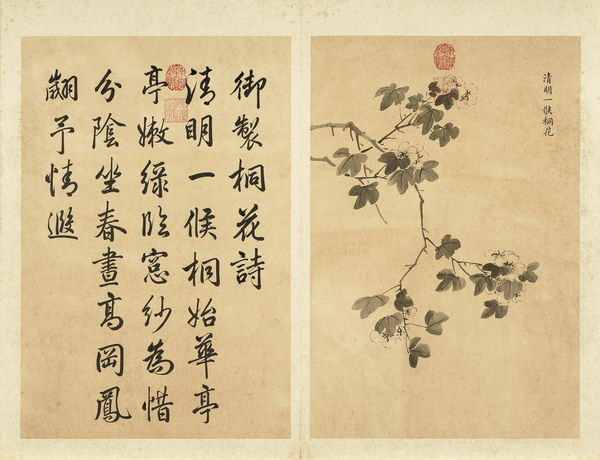 清明一候桐花
御製桐花詩
清明一候桐始華亭
亭嫩綠臨窓紗為惜
分陰坐春晝高岡鳳
翽予情遐